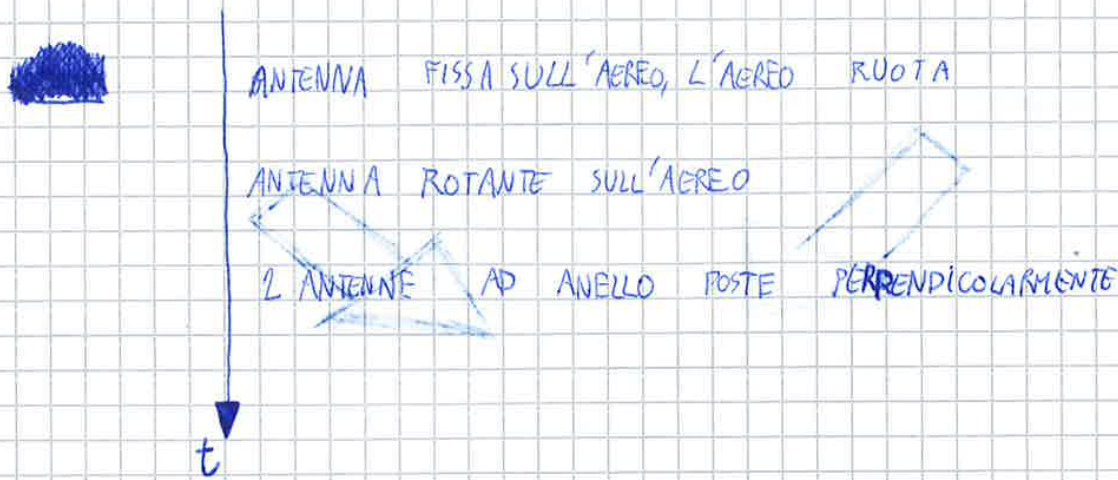 ANTENNA FISSA SULL'AEREO, L'AEREO RUOTA
ANTENNA ROTANTE SULL'AEREO
2 ANTENNE AD ANELLO POSTE PERPENDICOLARMENTE
t